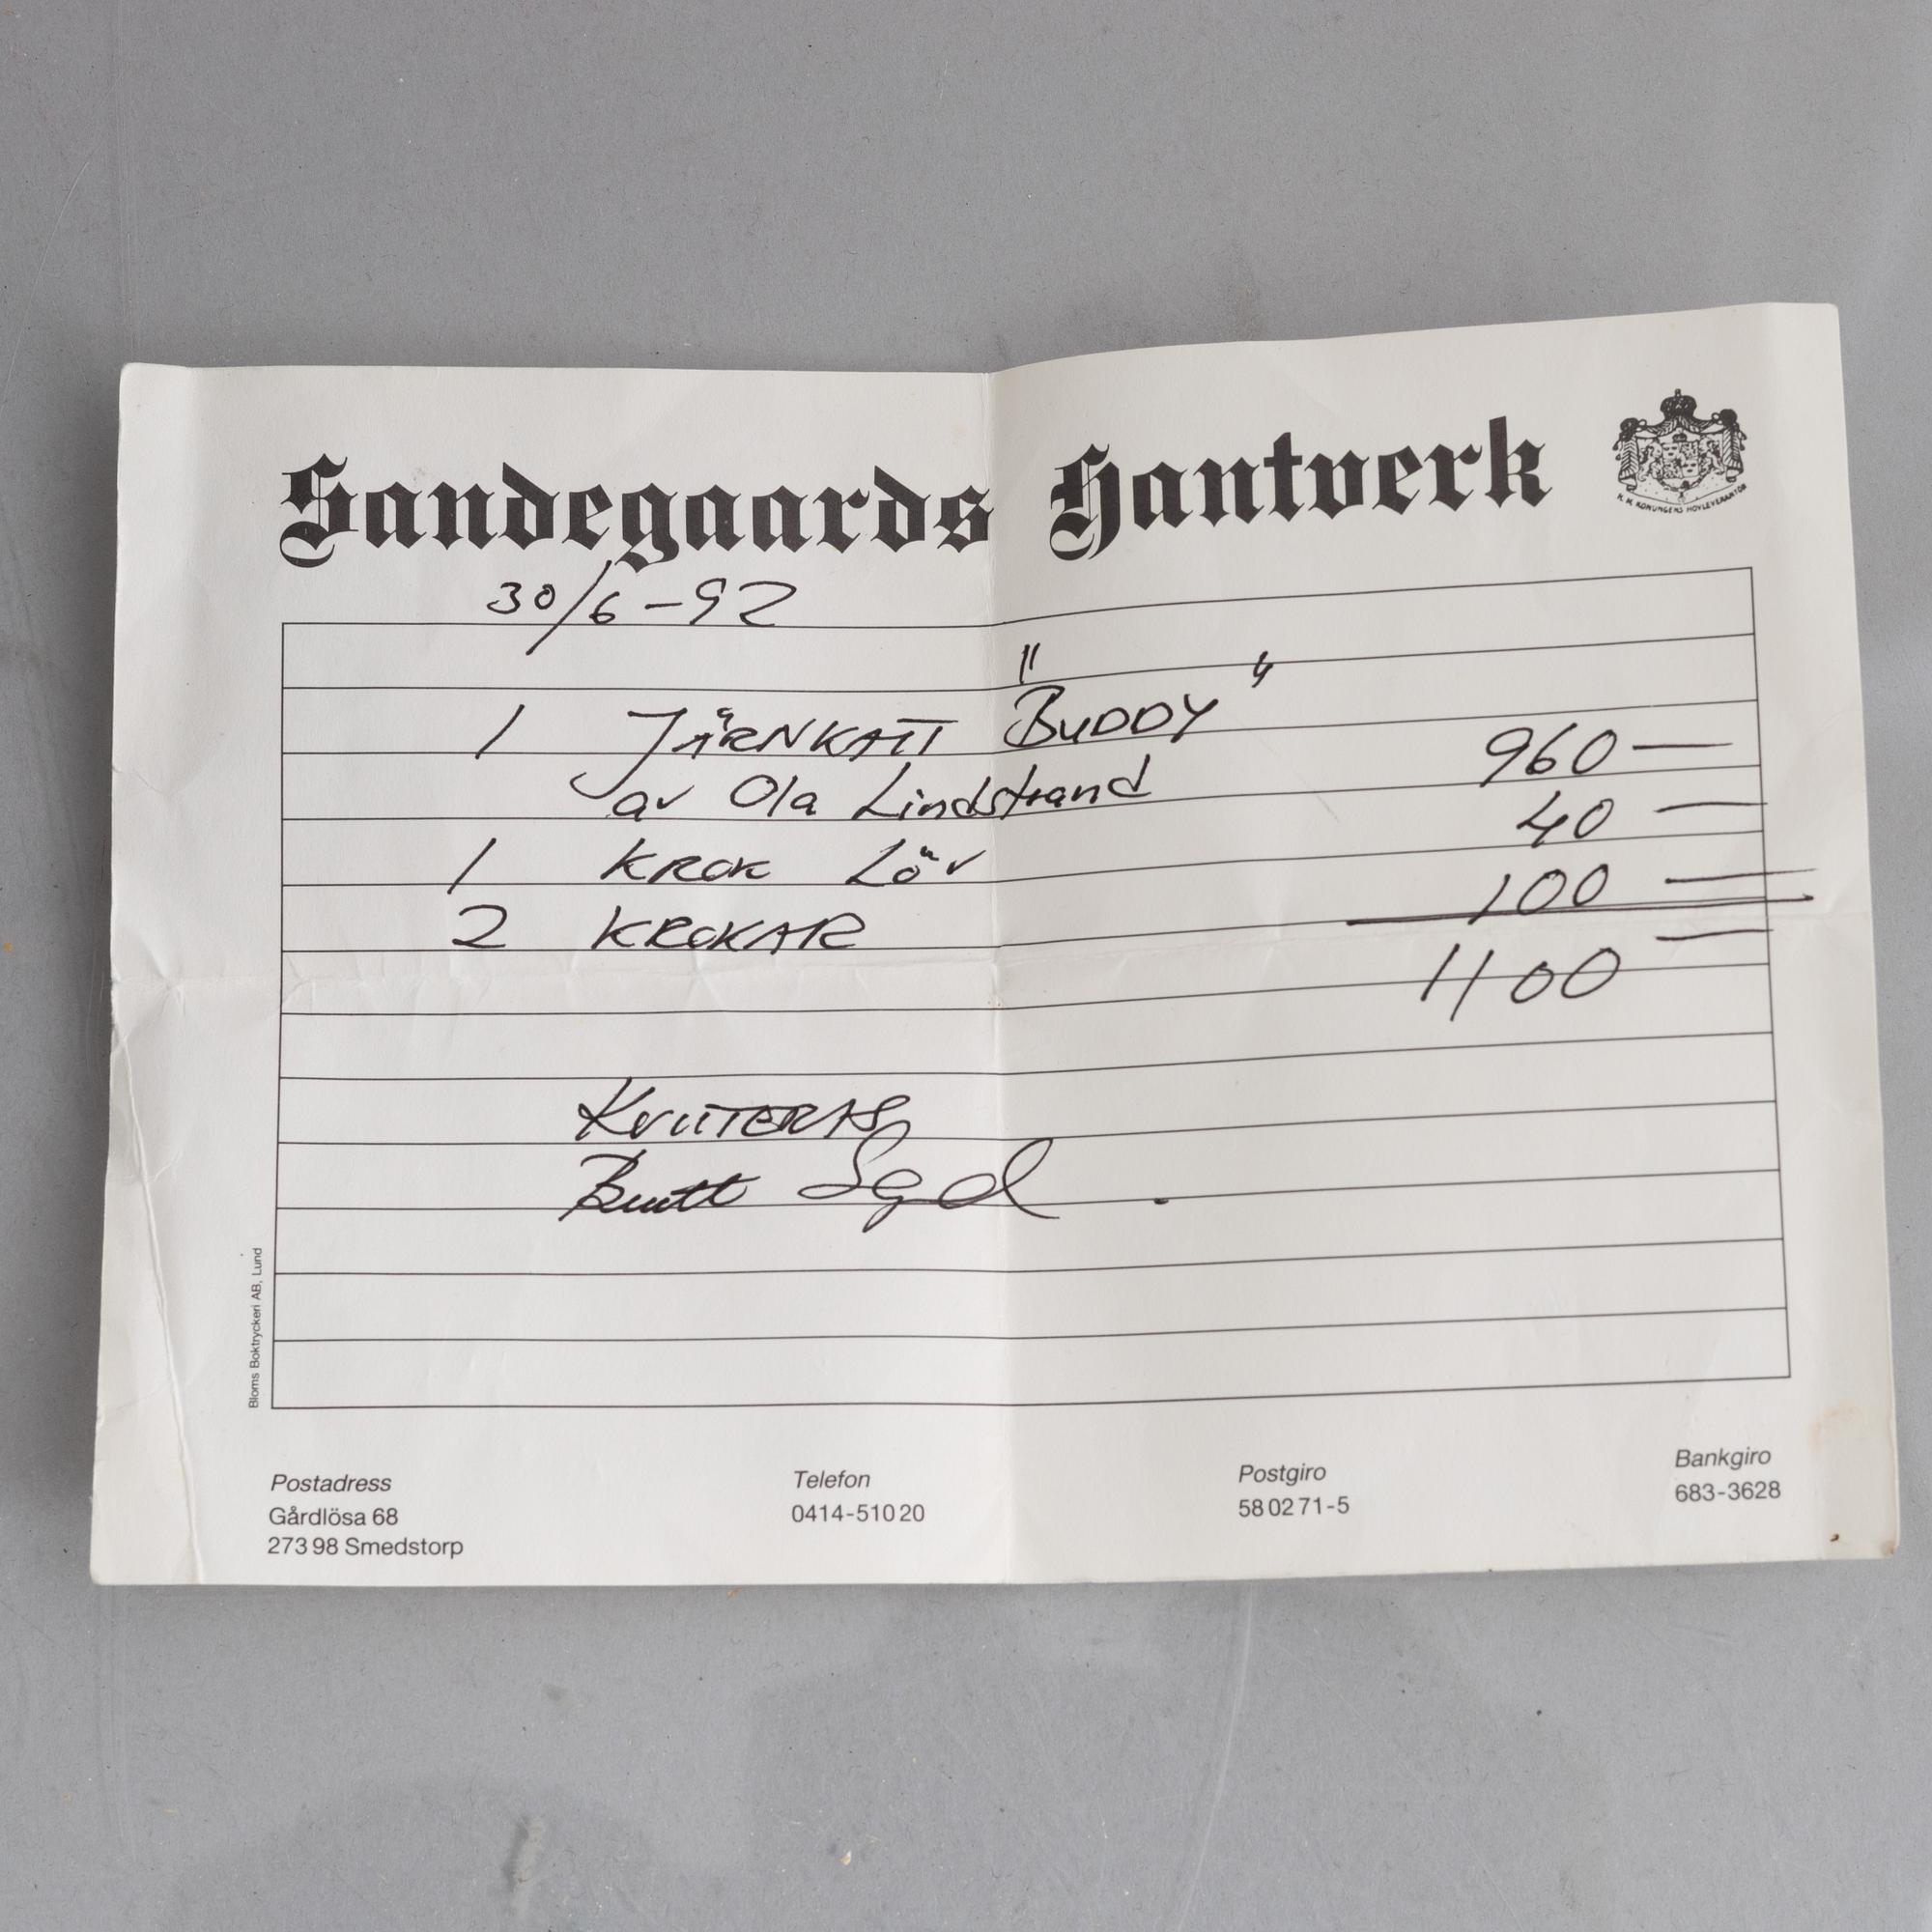 Sandegaards Hantverk
K. M. KONUNGENS HOVLEVERANTÖR
30/6-92
1 JÄRNKATT "BUDDY" 960—
av Ola Lindstrand
1 KROK LÖV 40—
2 KROKAR 100—
1100—
KVITTERAS
Bloms Boktryckeri AB, Lund
Postadress
Gårdlösa 68
273 98 Smedstorp
Telefon
0414-510 20
Postgiro
58 02 71-5
Bankgiro
683-3628